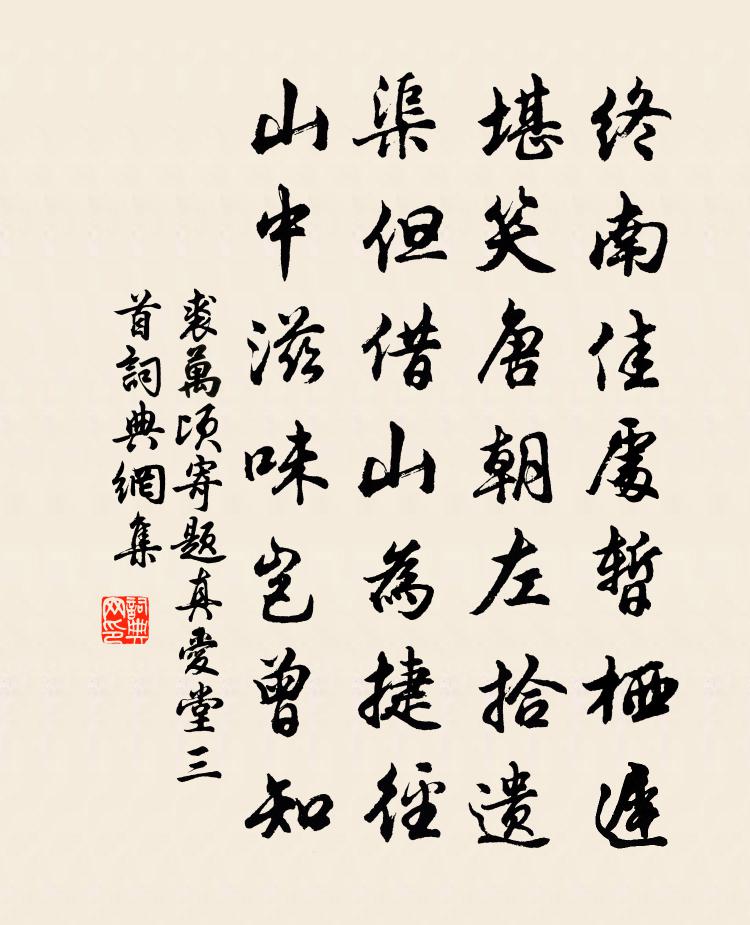 终南佳處暫栖遲
堪笑唐朝左拾遺
渠但借山為捷徑
山中滋味豈曾知
裘萬頃寄題真愛堂三
首詞典網集
詞典
网印